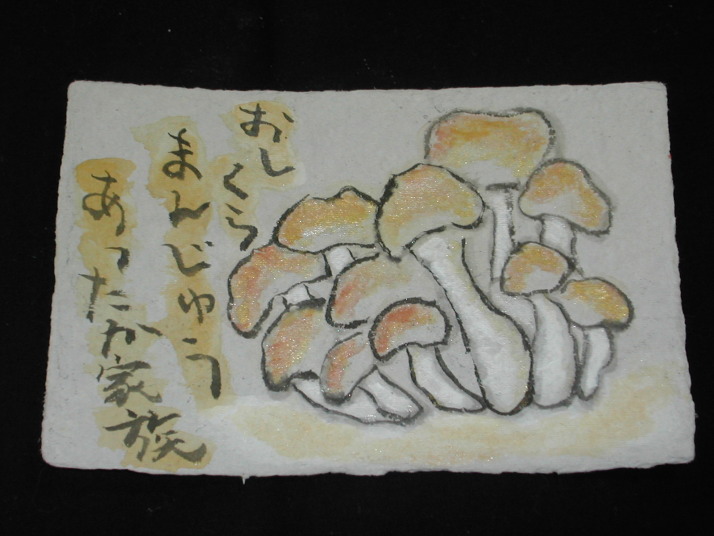 おしくら
まんじゅう
あったか家族